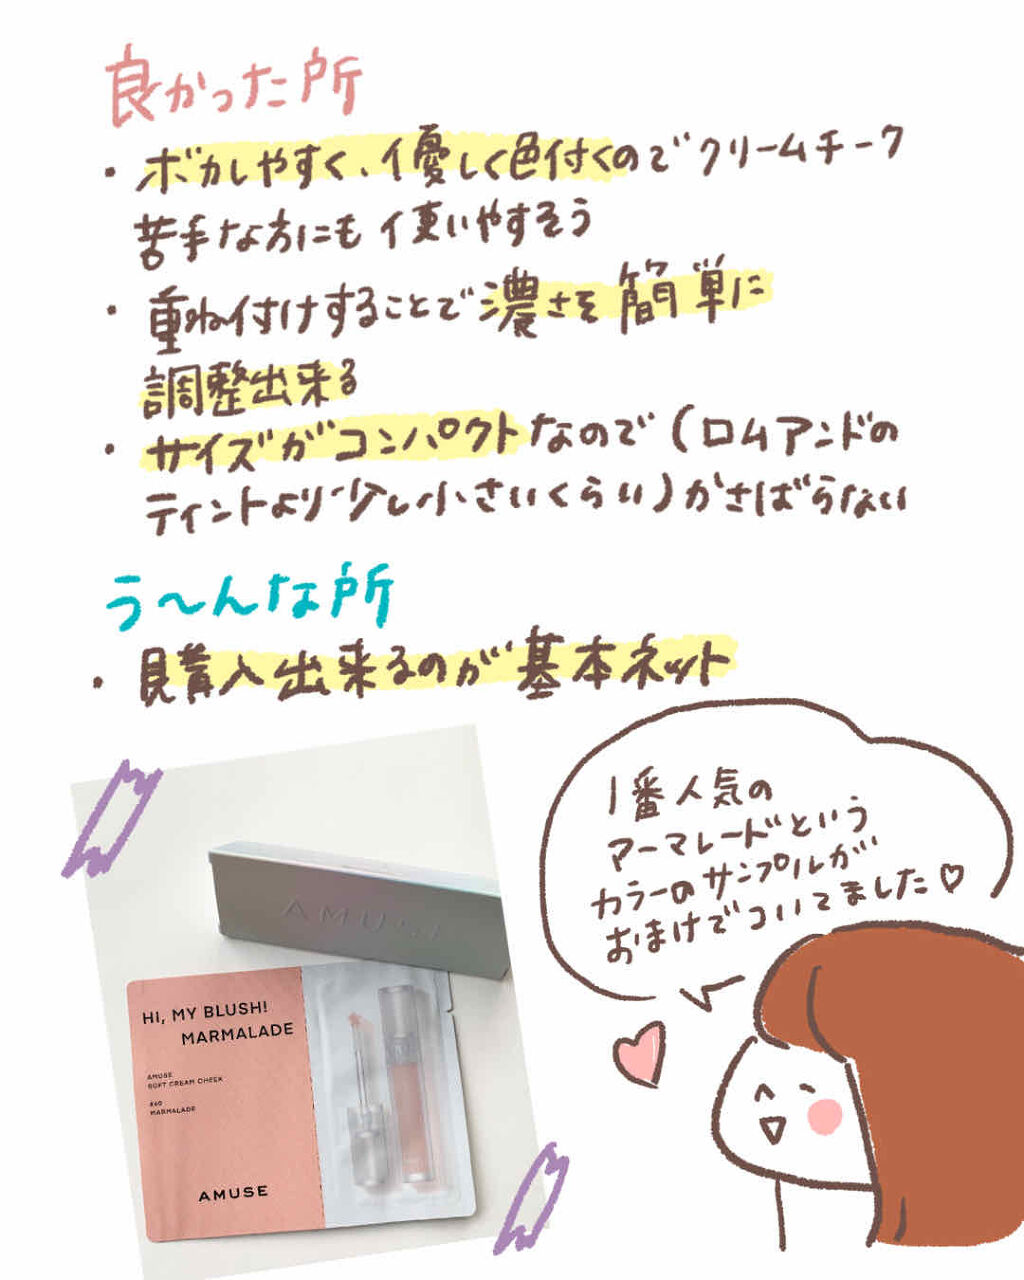 良かった所
・ボカしやすく、優しく色付くのでクリームチーク
苦手な方にも使いやすそう
・重ね付けすることで濃さを簡単に
調整出来る
・サイズがコンパクトなので(ロムアンドの
ティントより少し小さいくらい)かさばらない
う〜んな所
・購入出来るのが基本ネット
1番人気の
マーマレードという
カラーのサンプルが
おまけでついてました♡
AMUSE
HI, MY BLUSH!
MARMALADE
AMUSE
SOFT CREAM CHEEK
#60
MARMALADE
AMUSE